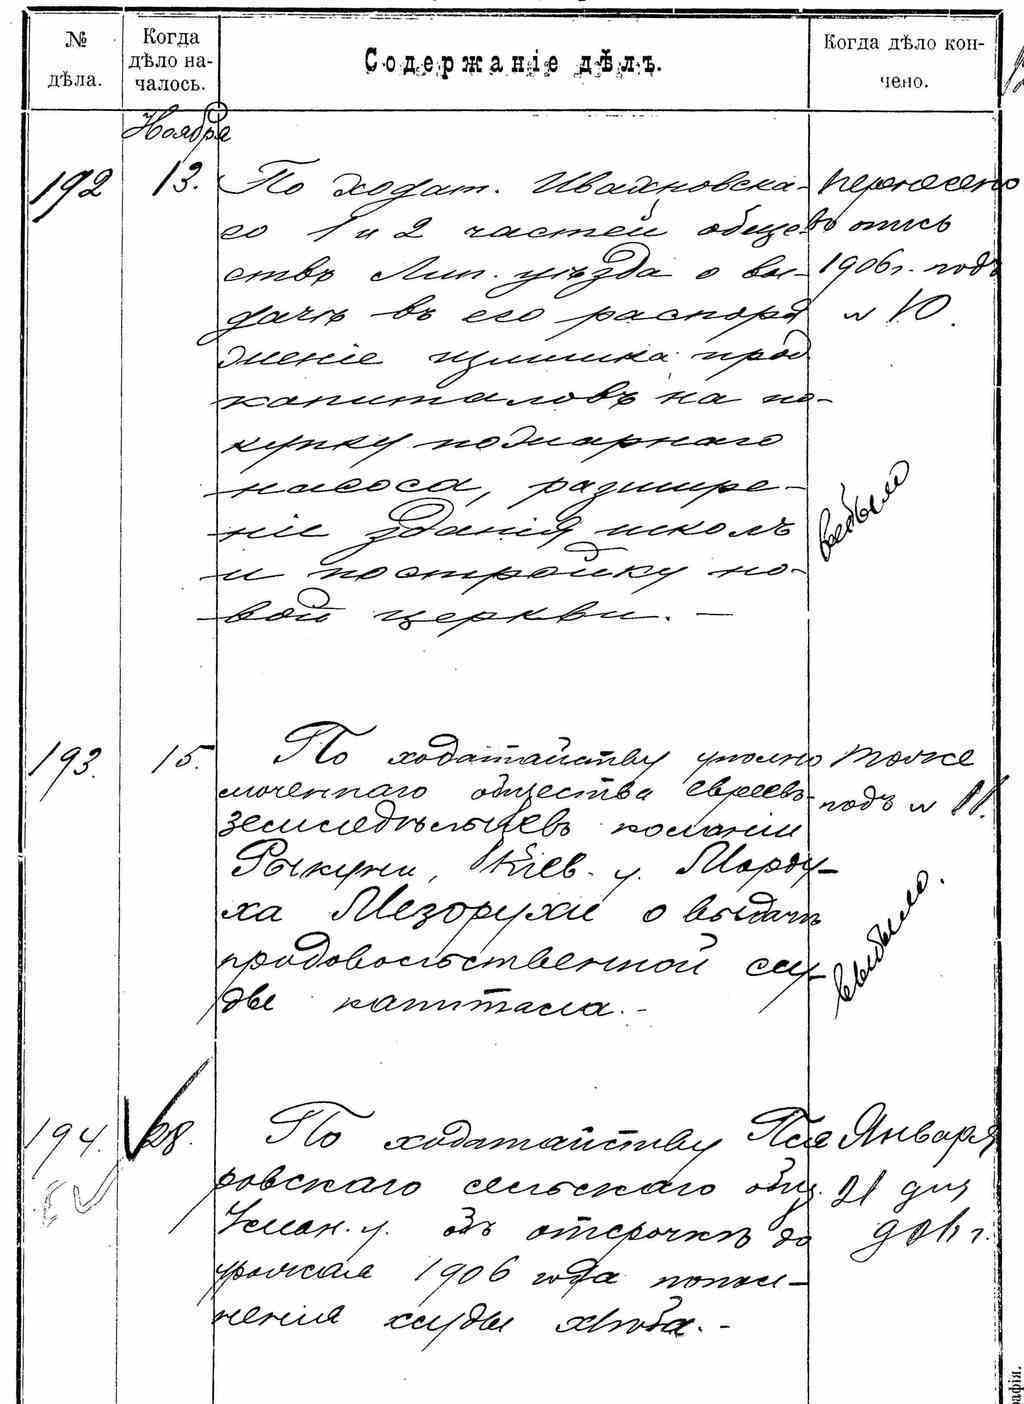 № дѣла.
Когда дѣло на-
чалось.
Содержаніе дѣлъ.
Когда дѣло кон-
чено.
Ноября
192
13.
По ходат. Ивахновска-
го 1 и 2 частей обще-
ствъ Лип. уѣзда о вы-
дачѣ въ его распоря
женіе излишка прод
капиталовъ на по-
купку пожарнаго
насоса, разшире-
ніе зданія школъ
и постройку но-
вой церкви. —
перенесено
въ опись
1906 г. подъ
№ 10.
выбыло
193.
15.
По ходатайству уполно
моченнаго общества евреевъ-
земледѣльцевъ колоніи
Рыкуни, Кіев. у. Морду-
ха Мезорухи о выдачѣ
продовольственной ссу-
ды капитала. -
тоже
подъ № 11.
выбыло.
194.
28.
По ходатайству
ровскаго сельскаго общ.
Уман. у. объ отсрочкѣ до
урожая 1906 года попол-
ненія ссуды хлѣба. -
Января
21 дня
906 г.
афія.